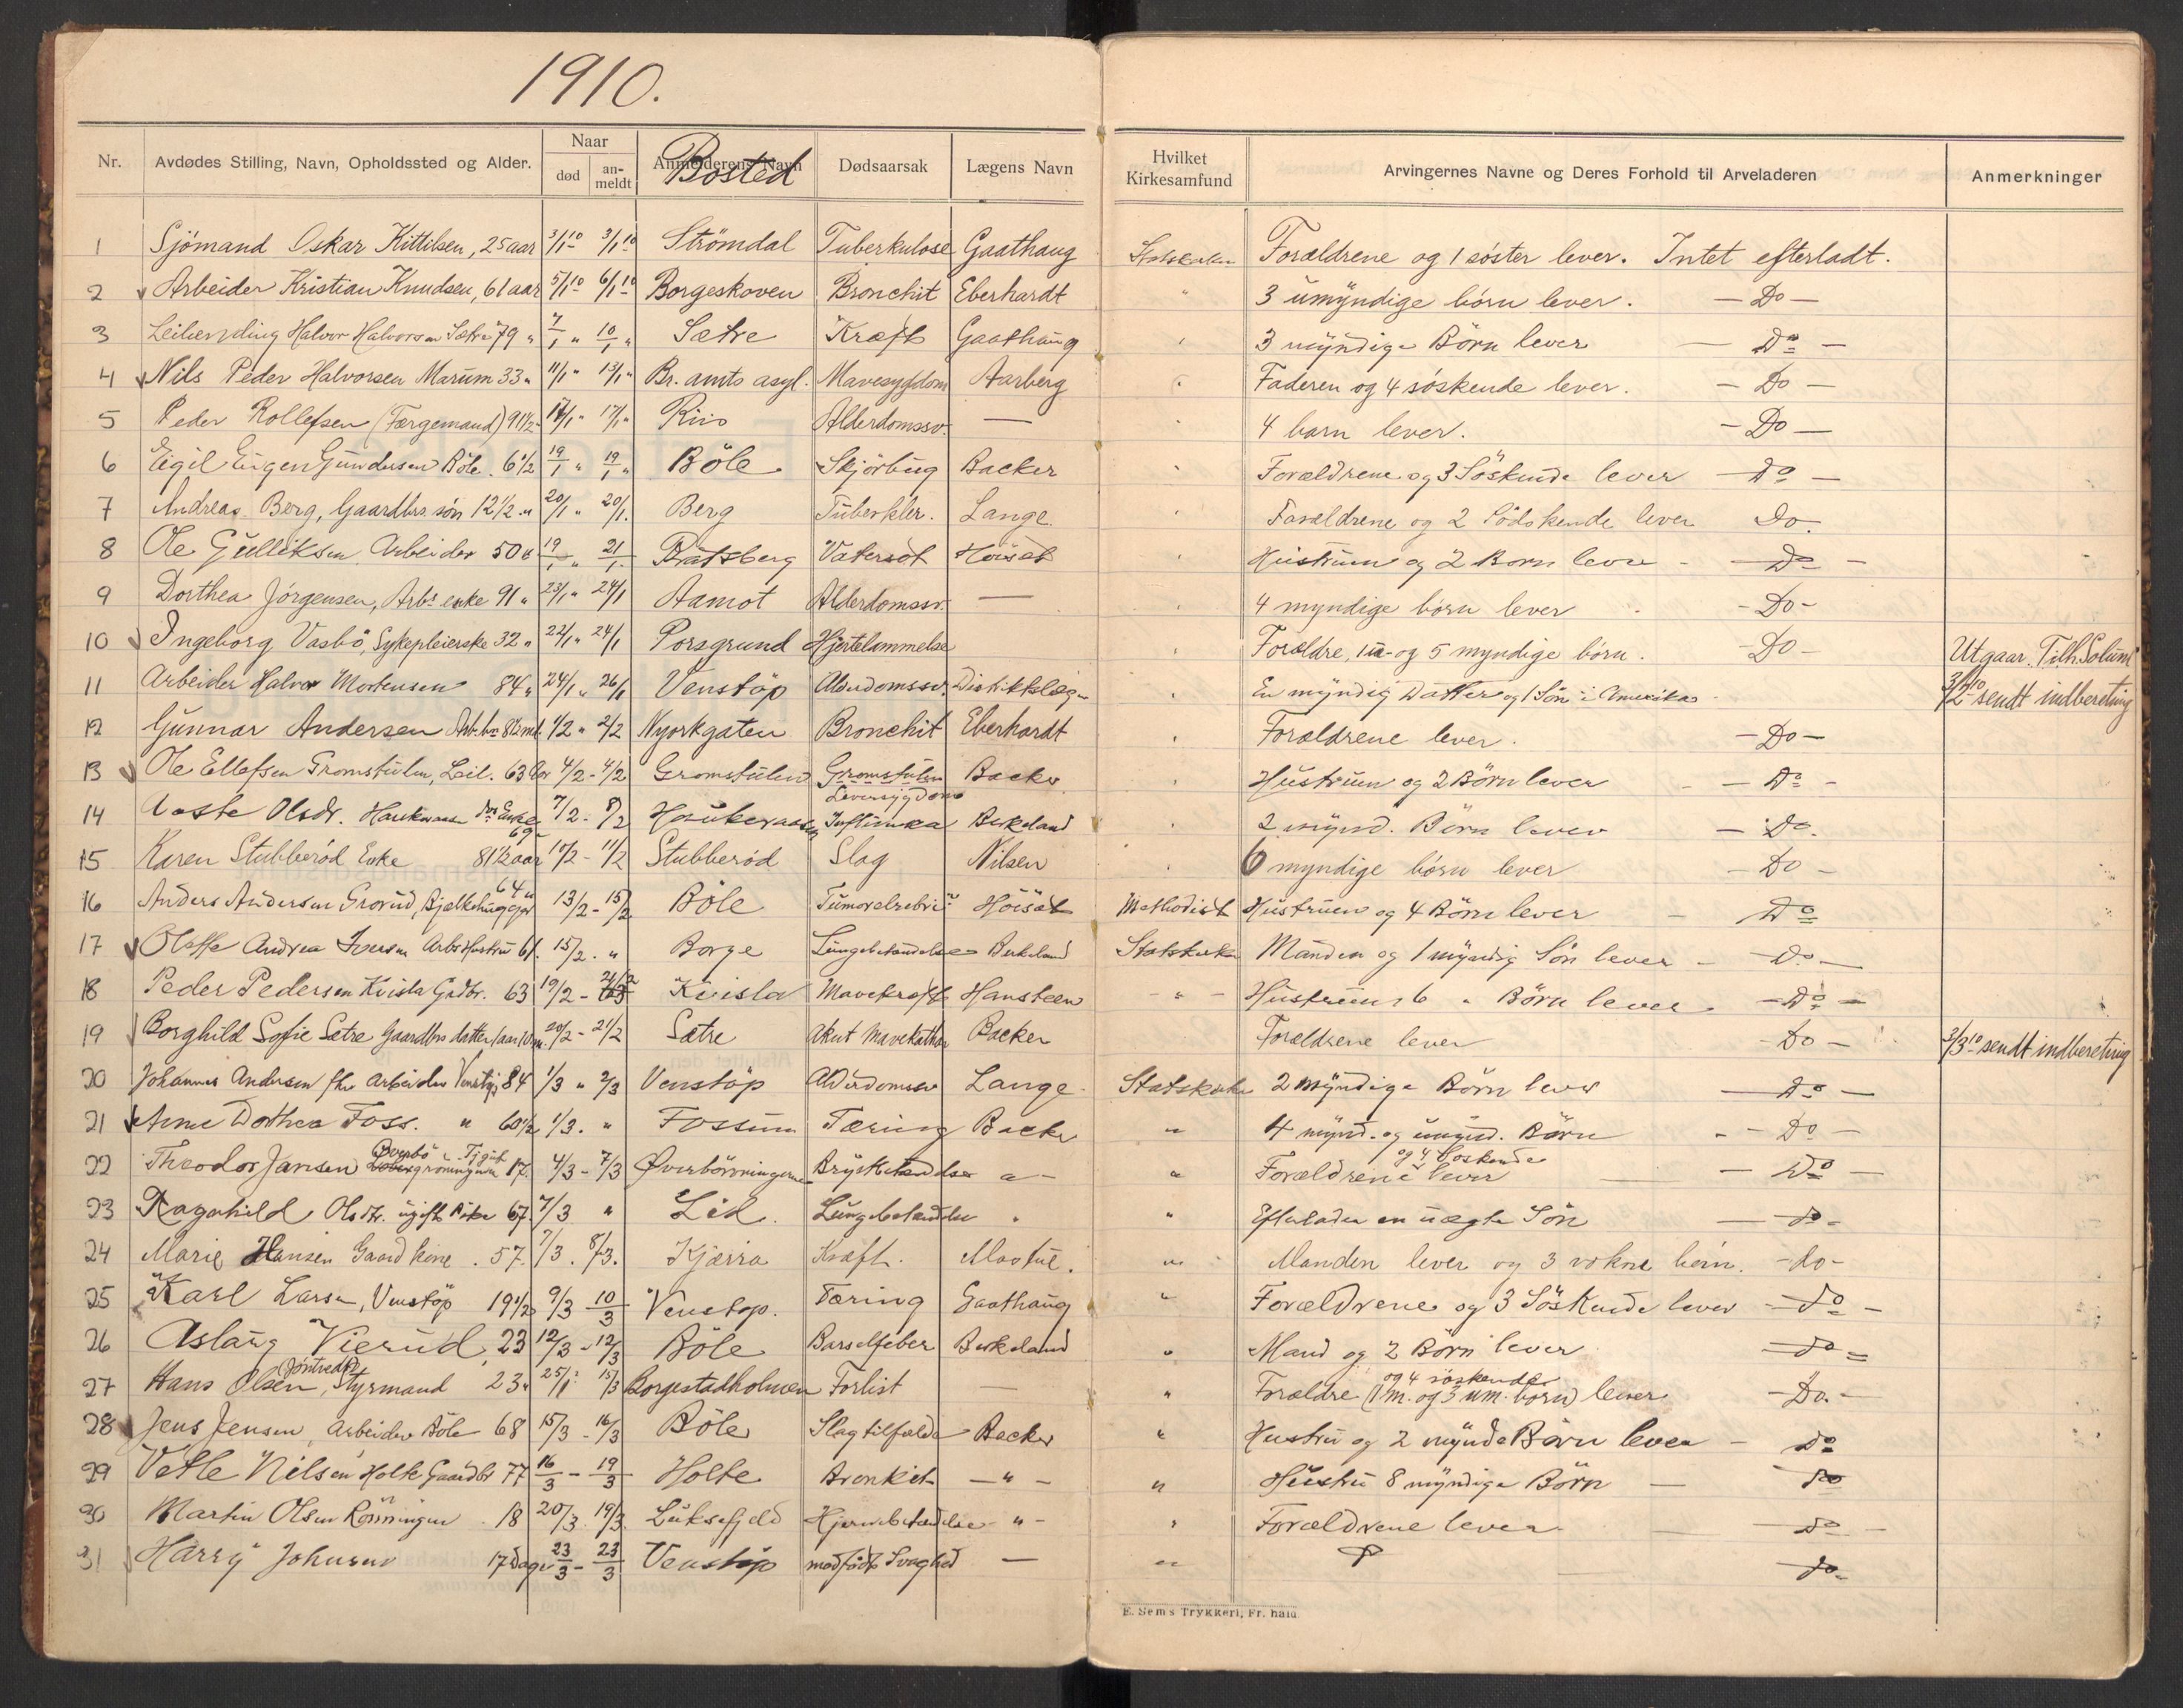 1910.
Nr. Avdødes Stilling, Navn, Opholdssted og Alder. Naar død an-meldt Anmelderens Navn Bosted Dødsaarsak Lægens Navn Hvilket Kirkesamfund Arvingernes Navne og Deres Forhold til Arveladeren Anmerkninger
1 Sjömand Oskar Kittilsen, 25 aar 3/1 10 3/1 10 Strömdal Tuberkulose Gaathaug Statskirken Forældrene og 1 söster lever. Intet efterladt.
2 Arbeider Kristian Knudsen, 61 aar 5/1 10 6/1 10 Borgeskoven Bronchit Eberhardt " 3 umyndige börn lever. - Do -
3 Leilænding Halvor Halvorsen Sætre 79 " 7/1 " 10/1 " Sætre Kræft Gaathaug " 3 myndige Börn lever - Do -
4 Nils Peder Halvorsen Marum 33 " 11/1 " 13/1 " Br. amts asyl. Mavesygdom Aarberg " Faderen og 4 söskende lever. - Do -
5 Peder Rollefsen (Færgemand) 91 1/2 " 17/1 " Riis Alderdomssv. — " 4 barn lever. - Do -
6 Eigil Eugen Gundersen Böle. 6 1/2 19/1 " 19/1 " Böle Skjörbug Backer " Forældrene og 3 Söskende lever - Do -
7 Andreas Berg, Gaardbrs. sön 12 1/2 " 20/1 " 20/1. Berg Tuberkler. Lange. " Forældrene og 2 Södskende lever Do.
8 Ole Gulliksen Arbeider 50 " 19/1 " 21/1. Bratsberg Vatersot Höisæt " Hustruen og 2 Born lever - Do -
9 Dorthea Jörgensen, Arbs enke 91 " 23/1 " 24/1 Aamot Alderdomssv. — " 4 myndige börn lever - Do -
10 Ingeborg Vasbö, Sykepleierske 32 " 22/1 " 24/1 Porsgrund Hjertelammelse " Forældre, 1 u- og 5 myndige börn. - Do - Utgaar. Tilh. Solum
11 Arbeider Halvor Mortensen 84 " 24/1 " 26/1 Venstöp Alderdomssv. Distriktslægen " En myndig Datter og 1 Sön i Amerika 3/2 10 sendt indberetning
12 Gunnar Andersen Arb. bn 8 1/2 md. 1/2 " 2/2 Nyorkgaten Bronchit Eberhardt " Forældrene lever. - Do -
13 Ole Ellefsen Gromstulen, Leil. 63 Aar 4/2 - 4/2 Gromstulen Gromstulen Leversygdom Backer " Hustruen og 2 Börn lever - Do -
14 Aaste Olsdr. 69 7/2 - 8/2 Influenza Berkeland " 2 mynd. Börn lever - Do.
15 Karen Stubberöd Enke 81 1/2 aar 11/2 Stubberöd Slag Nilsen " 6 myndige börn lever - Do -
16 Anders Andersen Grorud, Bjelkehugger 64 " 13/2 - 15/2 Böle Höisæt Methodist Hustruen og 4 Börn lever - Do
17 Andrea Iversen Arbs Hustru 61. 15/2 . " Borge Lungebetændelse Berkeland Statskirke Manden og 1 myndig Sön lever - Do. -
18 Peder Pedersen Kvisla Grdbr. 63 19/2 - 21/2 Kvisla Mavekræft Hansteen - " - Hustruen 6 " Börn lever - Do -
19 Borghild Sofie Sætre Gaardbrs datter 1 aar 20/2 - 21/2 Sætre Akut Mavekathar Backer Forældrene lever - Do - 3/3 10 sendt indberetning
20 Johannes Andersen fhv. Arbeider Venstöp 84 1/3 " 2/3 Venstöp Alderdomssv Lange. Statskirke 2 myndige Börn lever - Do -
21 Anne Dorthea Foss. " 60 1/2 1/3. " Fossum Tæring Backer " 4 mynd. og umynd. Börn - Do -
22 Theodor Jansen 17. 4/3 - 7/3 Brystbetændelse - " - " Forældrene og 4 Söskende lever - Do -
23 Ragnhild Olsdtr. ugift Pike 67. 7/3 " Lid. Lungebetændelse " " Efterlader en uægte Sön - do -
24 Marie Hansen Gaardkone. 57. 7/3. 8/3. Kjærra Kræft. " Manden lever og 3 vokne börn. - do -
25 Karl Larsen, Venstöp 19 1/2 9/3 - 10/3 Venstöp. Tæring Gaathaug " Forældrene og 3 Söskende lever - do -
26 Aslaug Vierud, 23 12/3 - 12/3 Böle Barselfeber Berkeland " Mand og 2 Börn lever - do -
27 Hans Olsen, Styrmand 23 " 25/1 ? 15/3 Borgestadholmen Forlist — " Forældre og 4 söskende (1 m. og 3 um. börn) lever - Do. -
28 Jens Jensen, Arbeider Böle 68 15/3 - 16/3 Böle Slagtilfælde Backer " Hustru og 2 mynd. Börn lever - Do
29 Vetle Nilsen Holte Gaardbr 77 16/3 - 19/3 Holte Bronkit - " - " Hustru 8 myndige Börn - do
30 Martin Olsen Rönningen. 18 20/3. 19/3. Luksefjeld Hjernebetændelse - " - " Forældrene lever - do -
31 Harry Johnsen 17 dage 23/3 - 23/3 Venstöp medfödt Svaghed — " do -
E. Sems Trykkeri, Fr.hald.